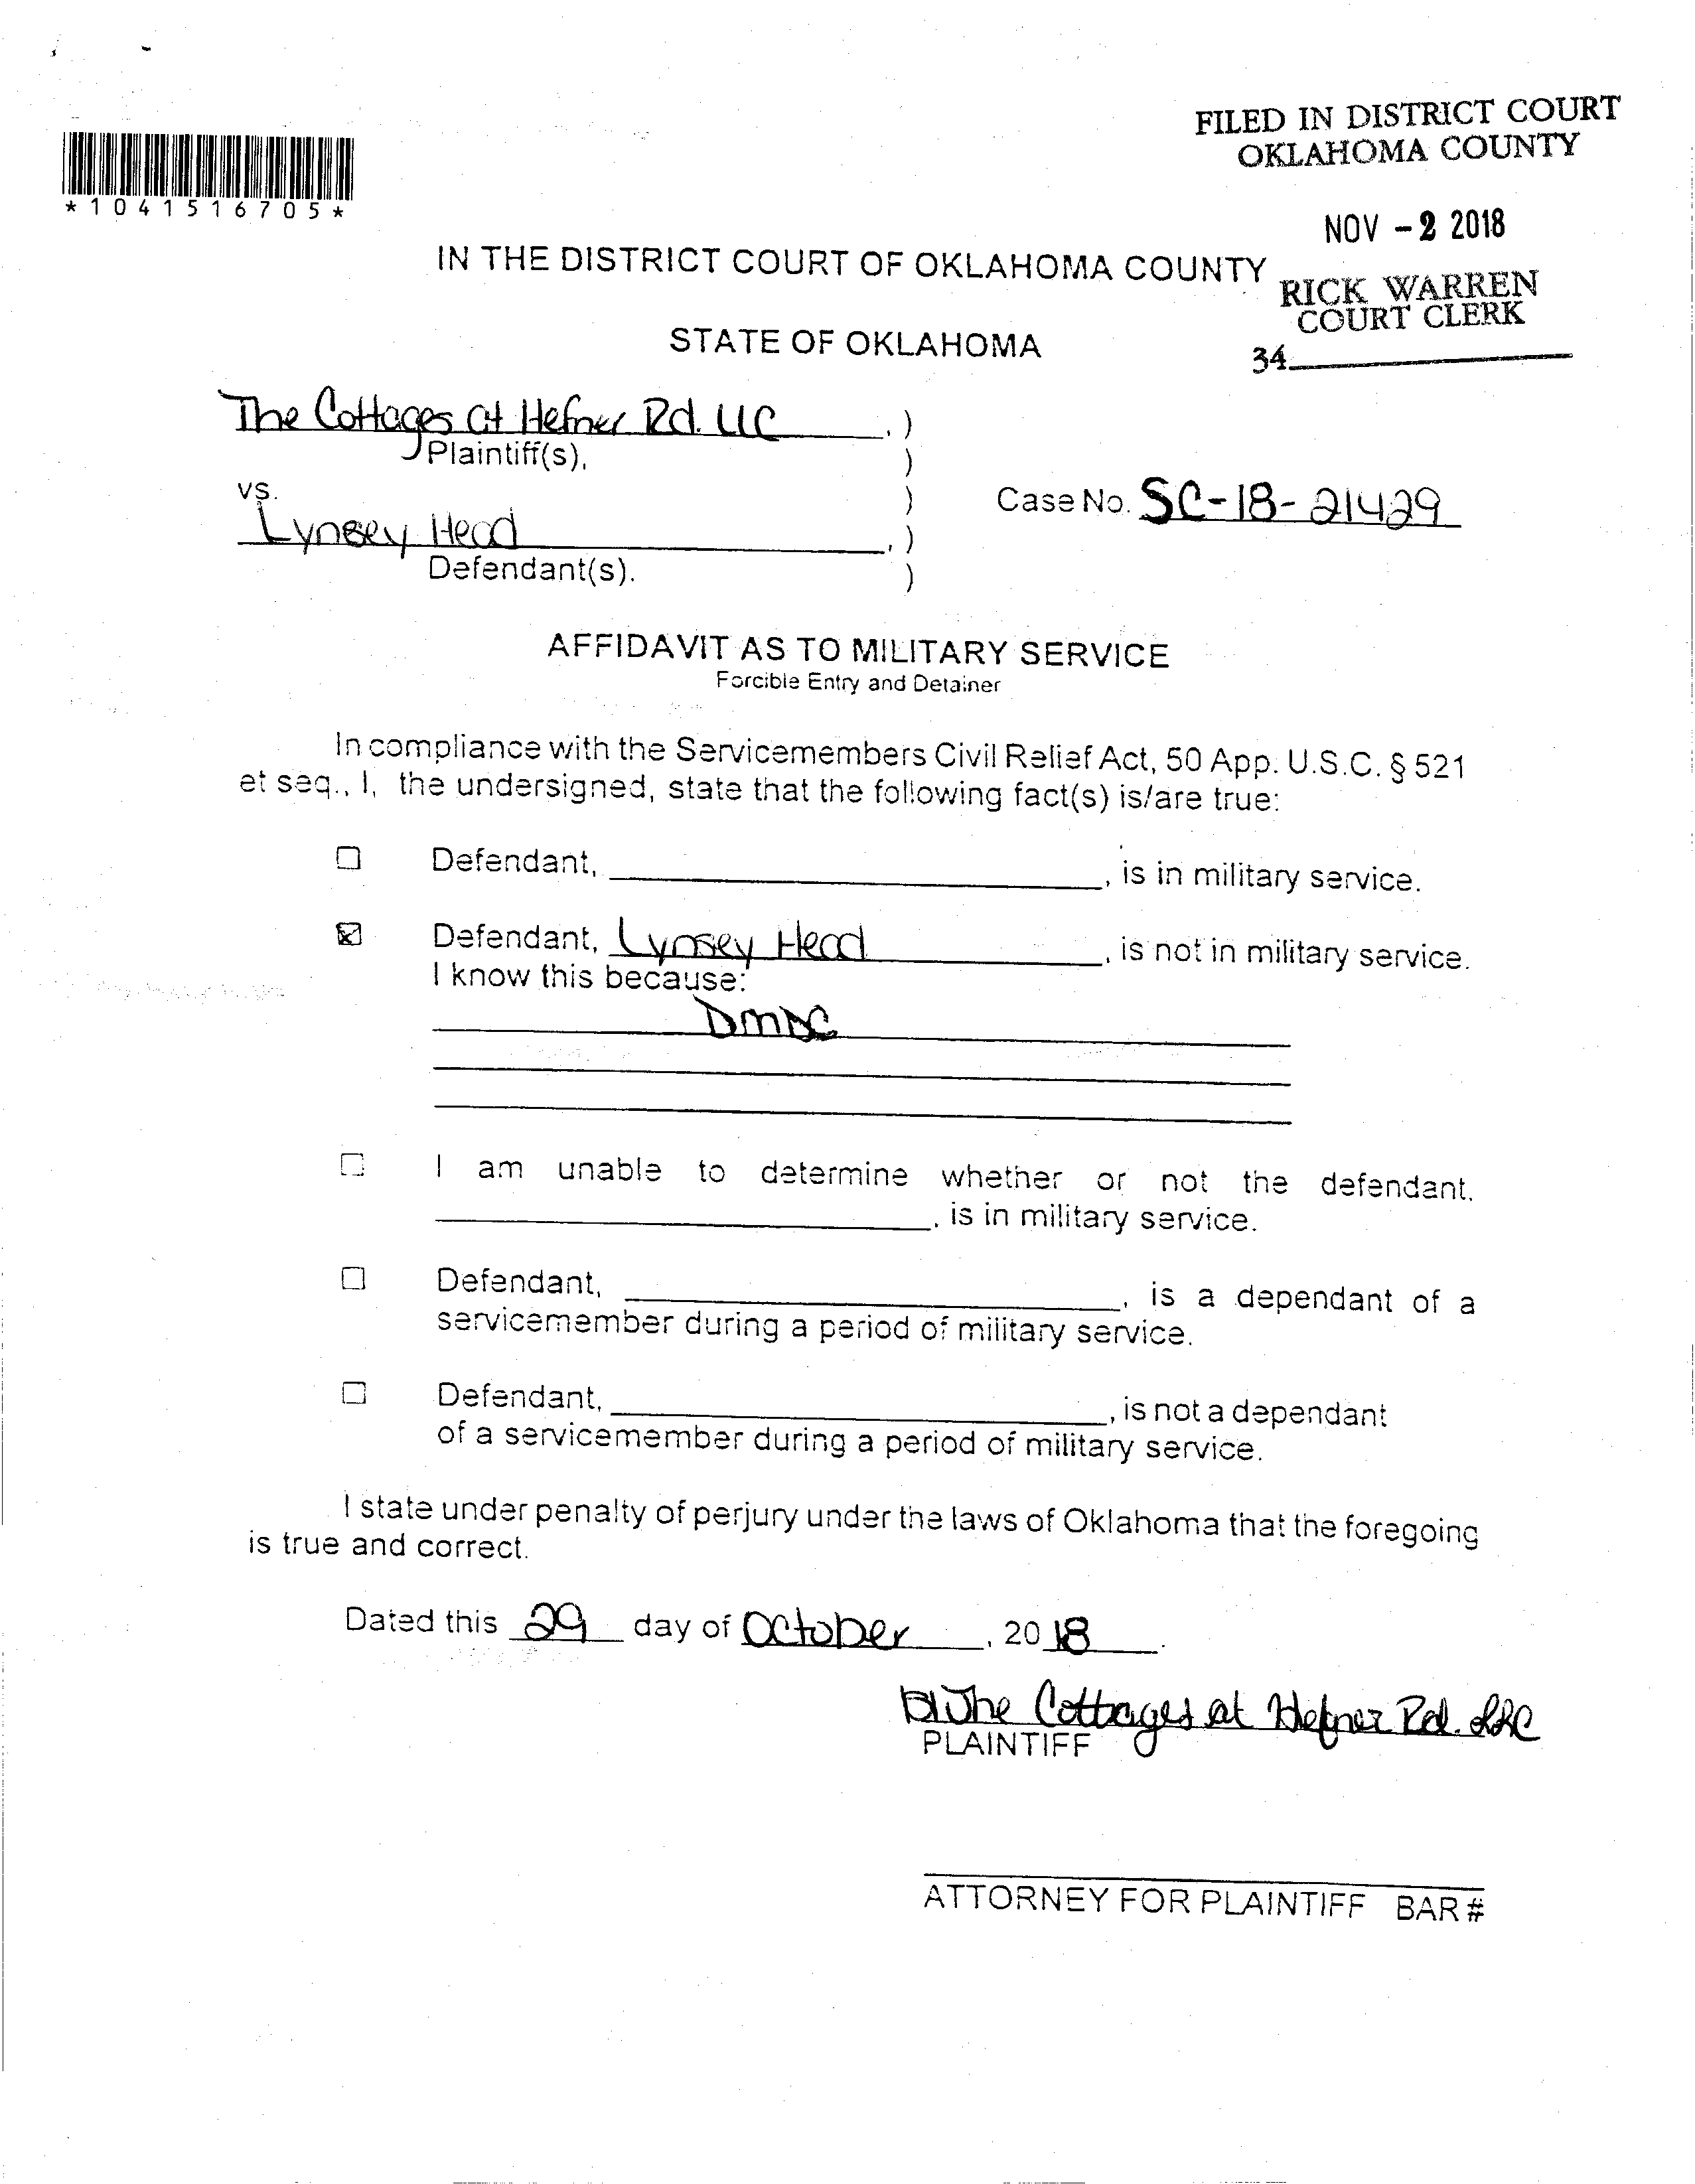 FILED IN DISTRICT COURT
OKLAHOMA COUNTY
*1041516705*
NOV -2 2018
IN THE DISTRICT COURT OF OKLAHOMA COUNTY
RICK WARREN
COURT CLERK
STATE OF OKLAHOMA
34
The Cottages at Hefner Rd. LLC , )
Plaintiff(s), )
vs. ) Case No. SC-18-21429
Lynsey Head , )
Defendant(s). )
AFFIDAVIT AS TO MILITARY SERVICE
Forcible Entry and Detainer
In compliance with the Servicemembers Civil Relief Act, 50 App. U.S.C. § 521
et seq., I, the undersigned, state that the following fact(s) is/are true:
Defendant, , is in military service.
Defendant, Lynsey Head , is not in military service.
I know this because:
DMDC
I am unable to determine whether or not the defendant,
, is in military service.
Defendant, , is a dependant of a
servicemember during a period of military service.
Defendant, , is not a dependant
of a servicemember during a period of military service.
I state under penalty of perjury under the laws of Oklahoma that the foregoing
is true and correct.
Dated this 29 day of October , 20 18 .
The Cottages at Hefner Rd. LLC
PLAINTIFF
ATTORNEY FOR PLAINTIFF BAR #